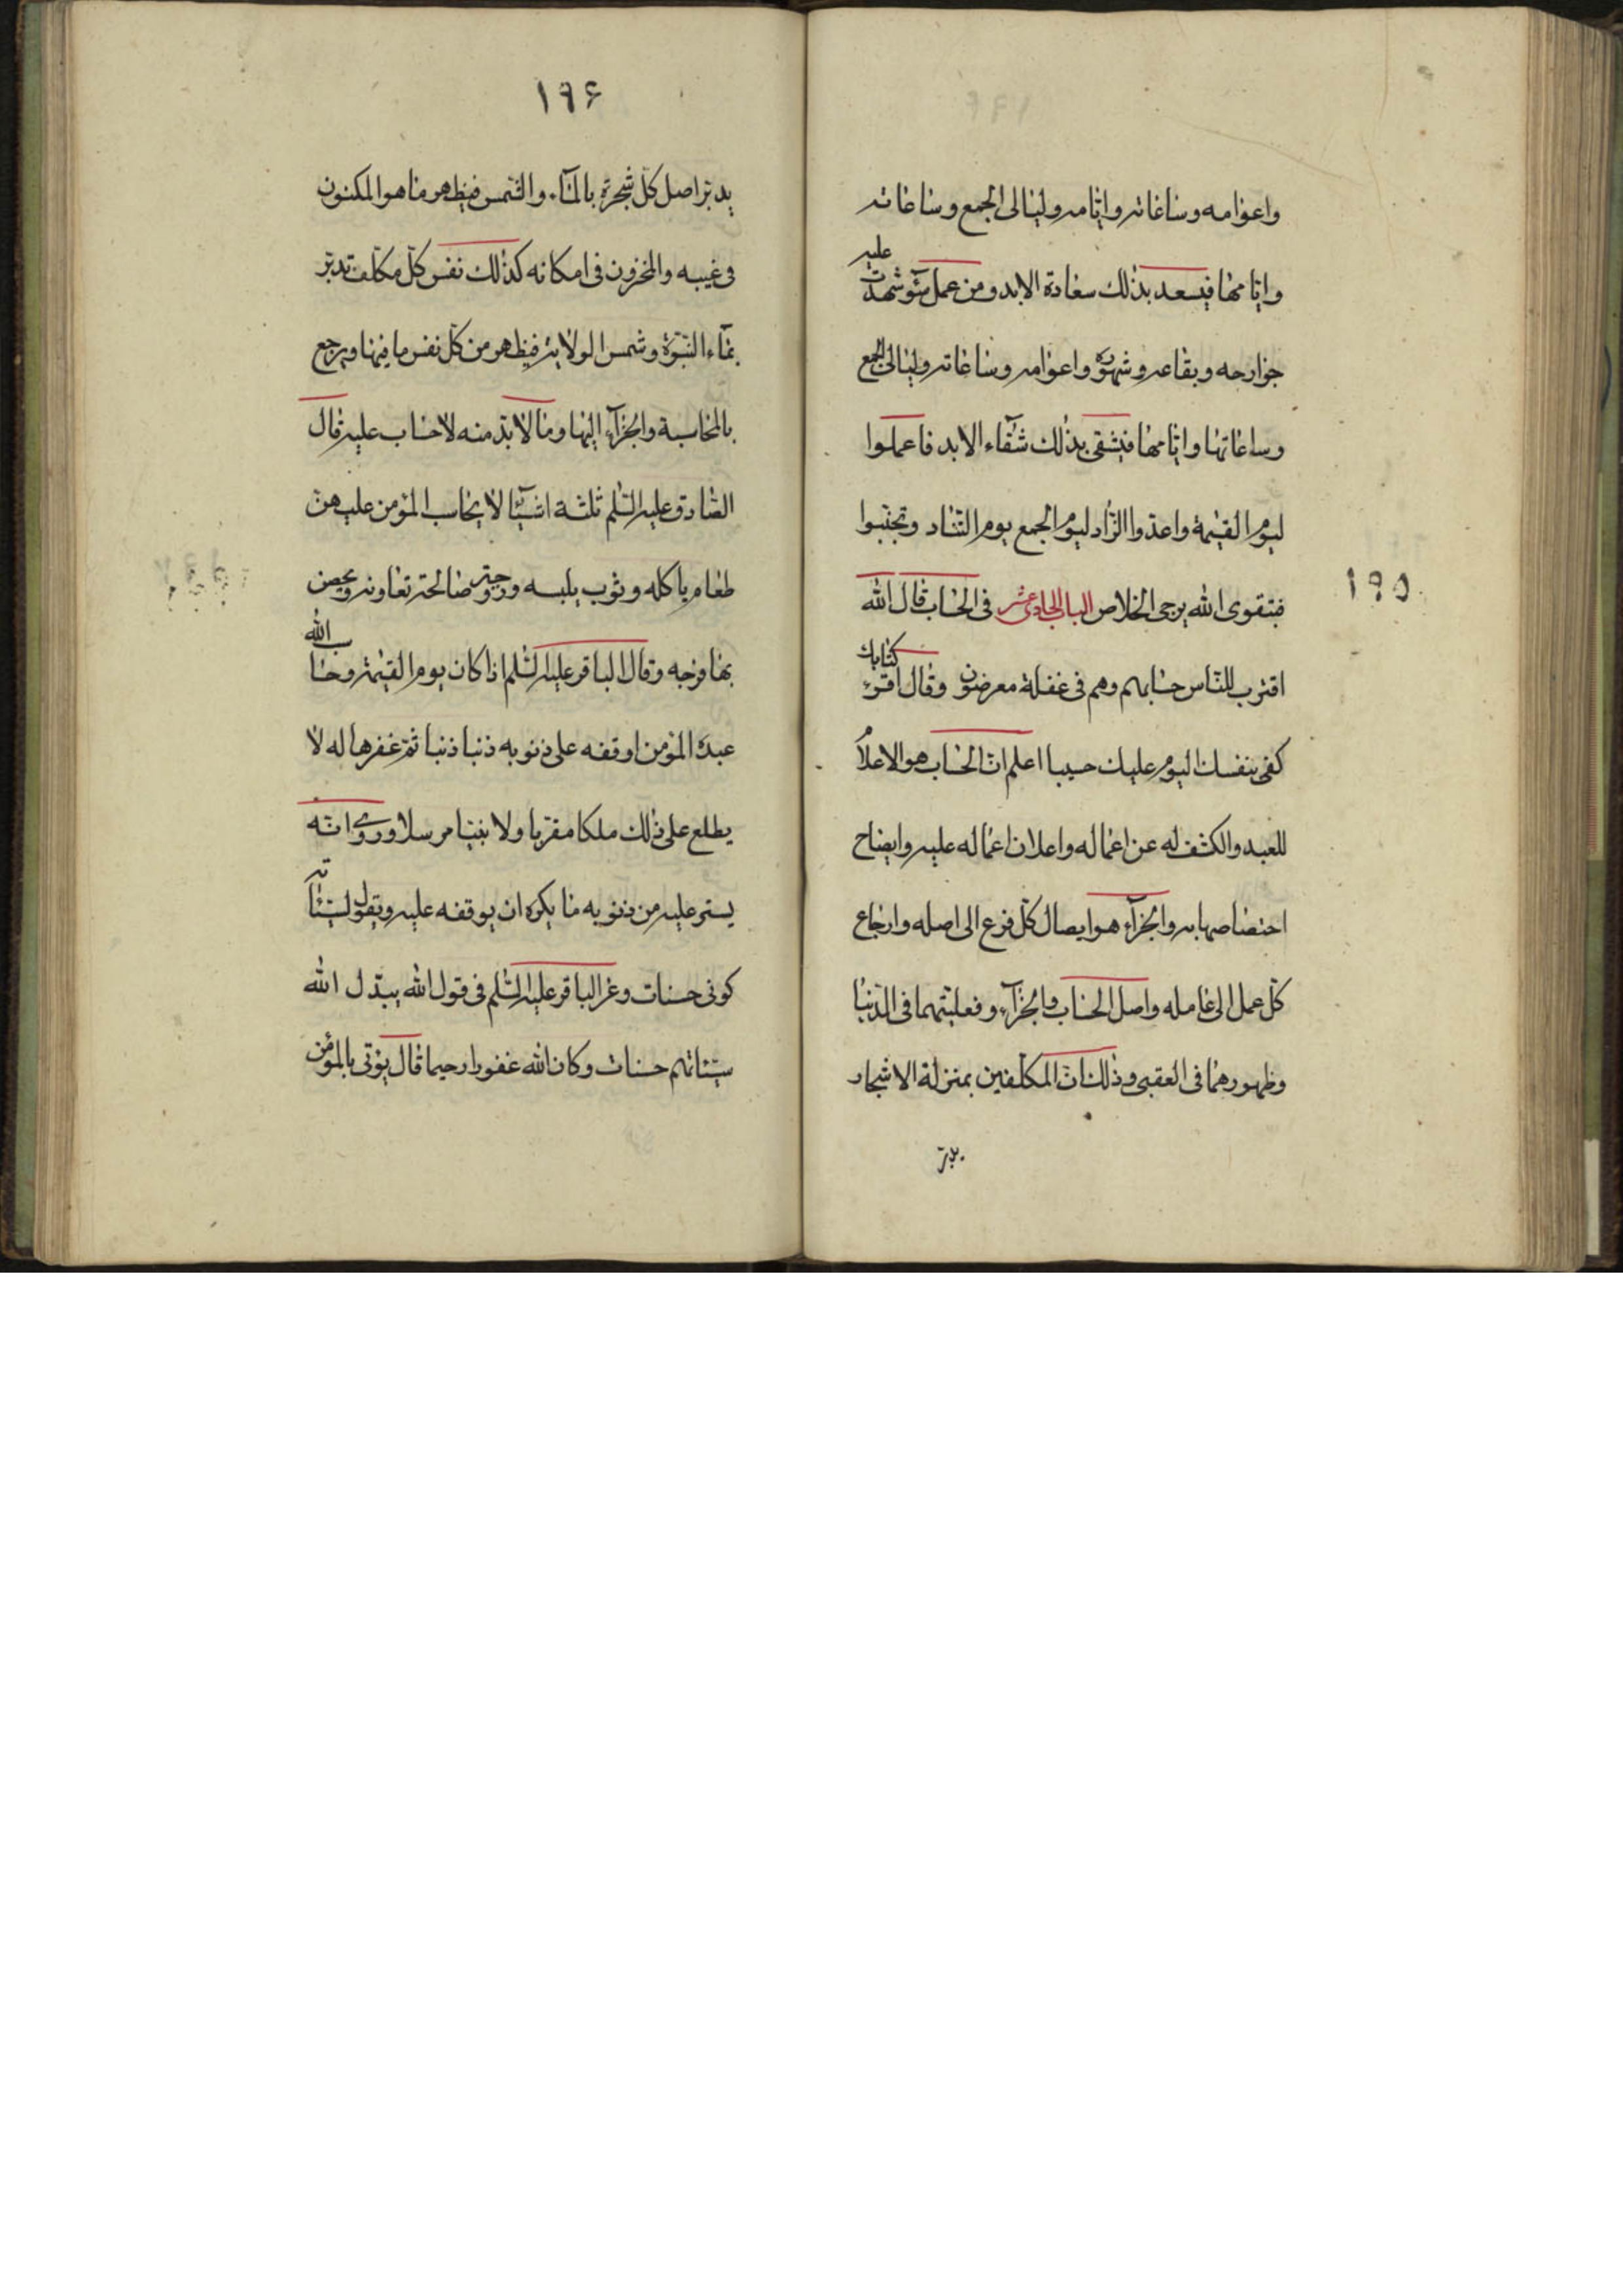 واعوامه وساعاته وايّامه وليالى الجمع وساعاته
وايّامها فيسعد بذلك سعادة الابد ومن عمل سوء شهدت عليه
جوارحه وبقاعه وشهوره واعوامه وساعاته وليالى الجمع
وساعاتها وايّامها فيشقى بذلك شقاء الابد فاعملوا
ليوم القيمة واعدّوا الزّاد ليوم الجمع يوم التّناد وتجنّبوا
فبتقوى الله يرجى الخلاص الباب الحادى عشر فى الحساب قال الله
١٩٥
اقترب للنّاس حسابهم وهم فى غفلة معرضون وقال اقرء كتابك
كفى بنفسك اليوم عليك حسيبا اعلم انّ الحساب هو الاعلام
للعبد والكشف له عن اعماله واعلان اعماله عليه وايضاح
اختصاصها به والجزآء هو ايصال كلّ فرع الى اصله وارجاع
كلّ عمل الى عامله واصل الحساب والجزآء وفعليّتهما فى الدّنيا
وظهورهما فى العقبى وذلك انّ المكلّفين بمنزلة الاشجار
يدبّر
١٩۶
يدبّر اصل كلّ شجرة بالمآء والشّمس فيظهر ما هو المكنون
فى غيبه والمخزون فى امكانه كذلك نفس كلّ مكلّف تدبّر
بمآء النّبوّة وشمس الولاية فيظهر من كلّ نفس ما فيها ويرجع
بالمحاسبة والجزآء اليها وما لا بدّ منه لا حساب عليه قال
الصّادق عليه السّلم ثلثة اشيآء لا يحاسب المؤمن عليهنّ
طعام ياكله وثوب يلبسه وزوجة صالحة تعاونه ويحصن
بها فرجه وقال الباقر عليه السّلم اذا كان يوم القيمة وحاسب الله
عبده المؤمن اوقفه على ذنوبه ذنبا ذنبا ثمّ غفرها له لا
يطلع على ذلك ملكا مقرّبا ولا نبيّا مرسلا وروى انّه
يستر عليه من ذنوبه ما يكره ان يوقفه عليه ويقول لسيّئاته
كونى حسنات وعن الباقر عليه السّلم فى قول الله يبدّل الله
سيّئاتهم حسنات وكان الله غفورا رحيما قال يؤتى بالمؤمن